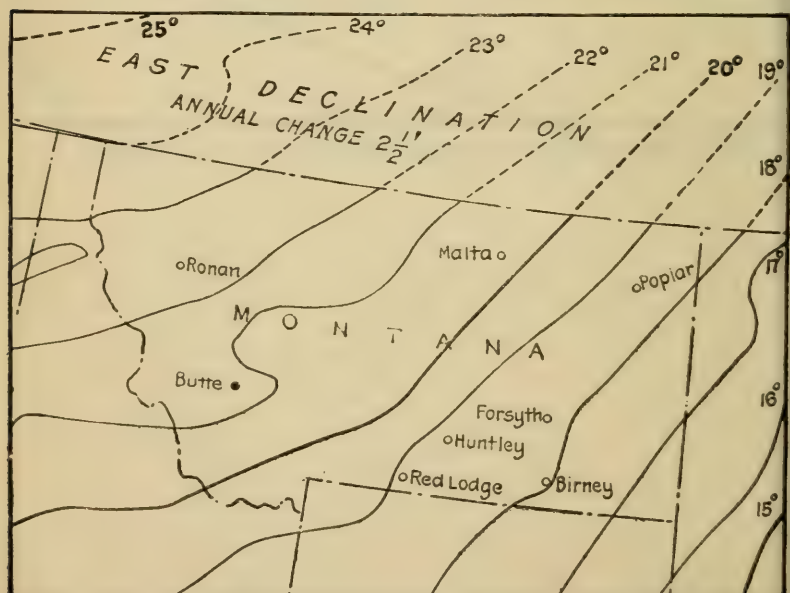 25°
24°
23°
22°
21°
20°
19°
EAST DECLINATION
ANNUAL CHANGE 2½'
18°
Malta
17°
Ronan
Popiar
MONTANA
Butte
16°
Forsyth
Huntley
Red Lodge
Birney
15°